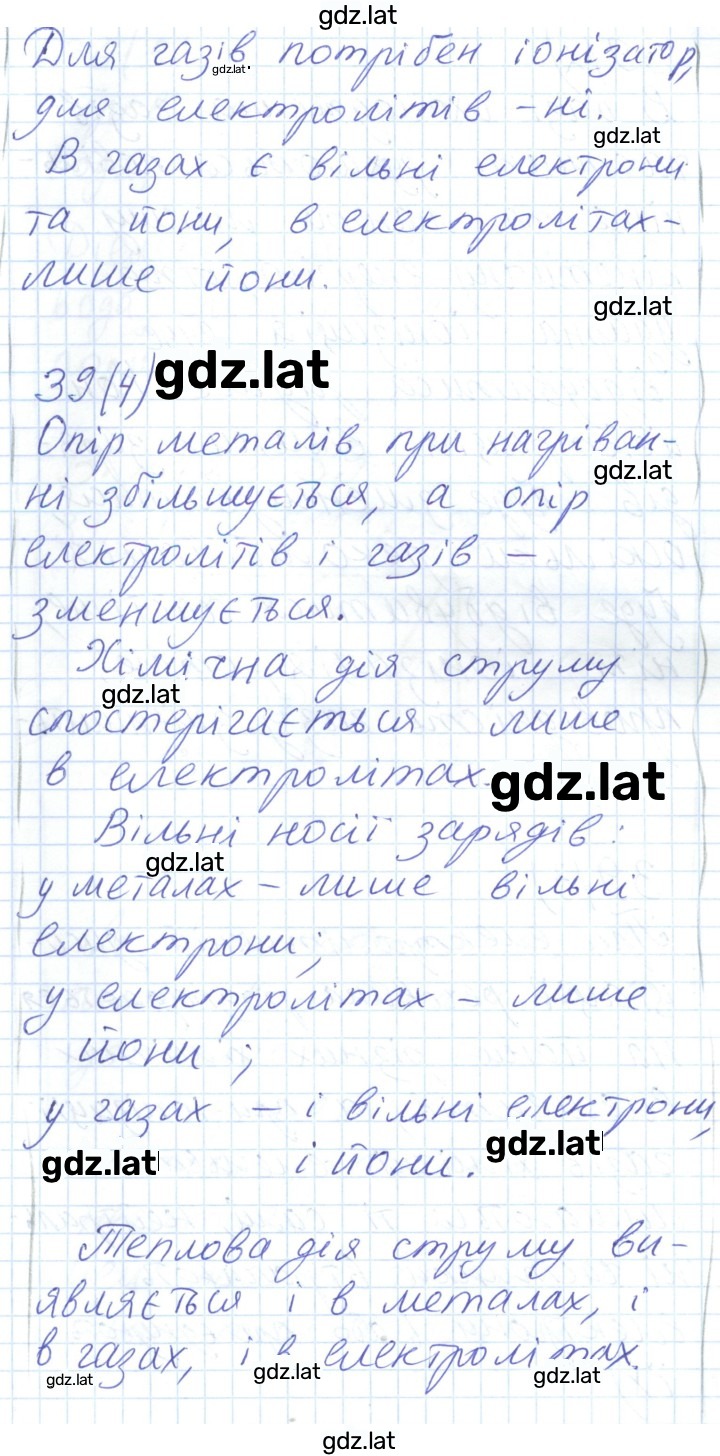 gdz.lat
Для газів потрібен іонізатор,
gdz.lat
для електролітів - ні.
gdz.lat
В газах є вільні електрони
та йони, в електролітах -
лише йони.
gdz.lat
39(4) gdz.lat
Опір металів при нагріван-
gdz.lat
ні збільшується, а опір
електролітів і газів -
зменшується.
Хімічна дія струму
gdz.lat
спостерігається лише
в електролітах. gdz.lat
Вільні носії зарядів:
gdz.lat
у металах - лише вільні
електрони;
у електролітах - лише
йони;
у газах - і вільні електрони,
gdz.lat і йони. gdz.lat
Теплова дія струму ви-
являється і в металах, і
в газах, і в електролітах.
gdz.lat gdz.lat gdz.lat
gdz.lat